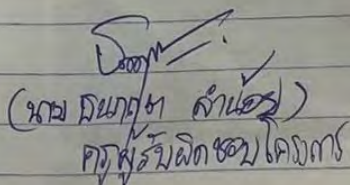 (นาย ธนาวุฒิ ลำน้อย)
ครูผู้รับผิดชอบโครงการ